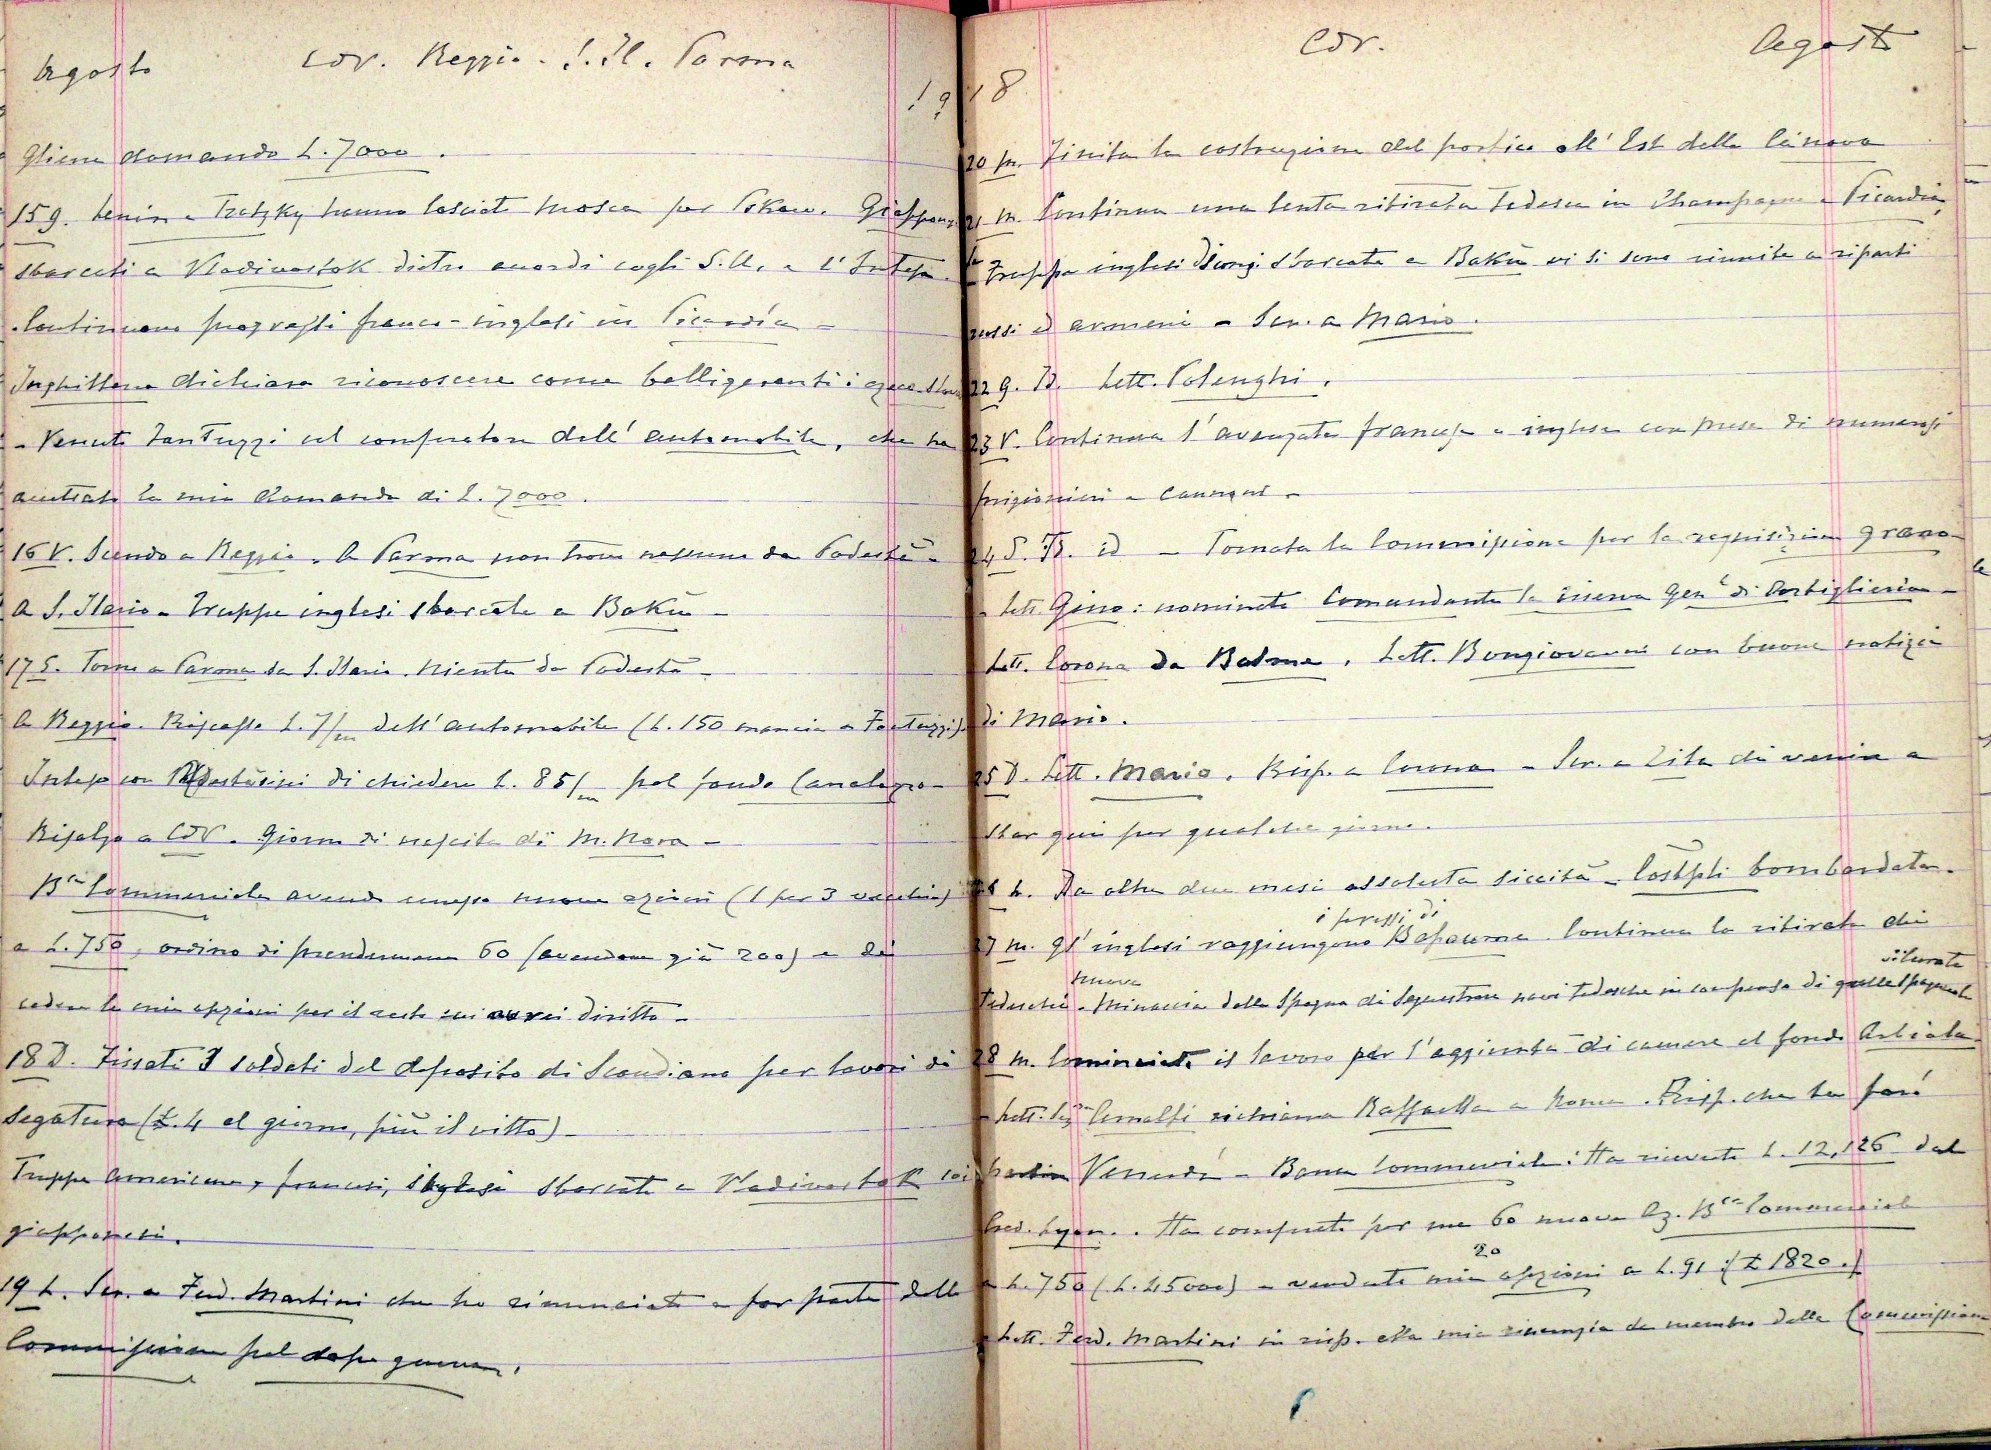 Agosto CDV. Reggio. S. Il. Parma
19
Gliene domando L. 7000.
15 g. Lenin e Trotzky hanno lasciato Mosca per Pskow. Giappon.
sbarcati a Vladivostok dietro accordi cogli S.U. e l'Intesa.
Continuano progressi franco-inglesi in Picardia -
Inghilterra dichiara riconoscere come belligeranti i czeco-slov
- Venuto Fantuzzi col compratore dell'automobile, che ha
accettato la mia domanda di L. 7000.
16 V. Scendo a Reggio. A Parma non trovo nessuno da Podestà -
A S. Ilario - Truppe inglesi sbarcate a Bakù -
17 S. Torno a Parma da S. Ilario. Niente da Podestà -
A Reggio. Riscosso L. 7/m dell'automobile (L. 150 mancia a Fantuzzi).
Inteso con di chiedere L. 85/m pel fondo Canalazzo -
Risalgo a CDV. Giorno di nascita di M. Nora -
Bca Commerciale avendo emesso nuove azioni (1 per 3 vecchie)
a L. 750, ordino di prendermene 60 (avendone già 200) e di
cedere le mie opzioni per il resto cui avrei diritto -
18 D. Fissati 3 soldati del deposito di Scandiano per lavori di
segatura (L. 4 al giorno, più il vitto) -
Truppe americane, francesi, inglesi sbarcate a Vladivostok coi
giapponesi.
19 L. Scr. a Ferd. Martini che ho rinunciato a far parte della
Commissione pel dopo guerra.
CDV. Agosto
18
20 M. Finita la costruzione del portico all'Est della Cà nova
21 M. Continua una lenta ritirata tedesca in Champagne e Picardia,
Truppe inglesi sbarcate a Bakù vi si sono riunite a riparti
russi ed armeni - Scr. a Mario.
22 G. B. Lett. Polenghi.
23 V. Continua l'avanzata francese e inglese con presa di numerosi
prigionieri e cannoni -
24 S. B. id - Tornata la Commissione per la requisizione grano -
- Lett. Gino: nominato Comandante la riserva Genle di Artiglieria -
Lett. Corona da Balme. Lett. Bongiovanni con buone notizie
di Mario.
25 D. Lett. Mario. Risp. a Corona - Scr. a Lila di venire a
star qui per qualche giorno.
26 L. Da oltre due mesi assoluta siccità - Costpli bombardata -
i pressi di
27 M. Gl'inglesi raggiungono Bapaume. Continua la ritirata dei
nuova silurate
Tedeschi. Minaccia della Spagna di sequestrare navi tedesche in compenso di quelle spagnole
28 M. Cominciato il lavoro per l'aggiunta di camere al fondo
- Lett. richiama Raffaella a Roma. Risp. che la farò
Venerdì - Banca Commerciale: Ha ricevuto L. 12,126 dal
Cred. Lyon. Ha comprato per me 60 nuove Az. Bca Commerciale
20
a L. 750 (L. 45000) - vendute mie opzioni a L. 91 (L. 1820.)
- Lett. Ferd. Martini in risp. alla mia rinunzia da membro della Commissione